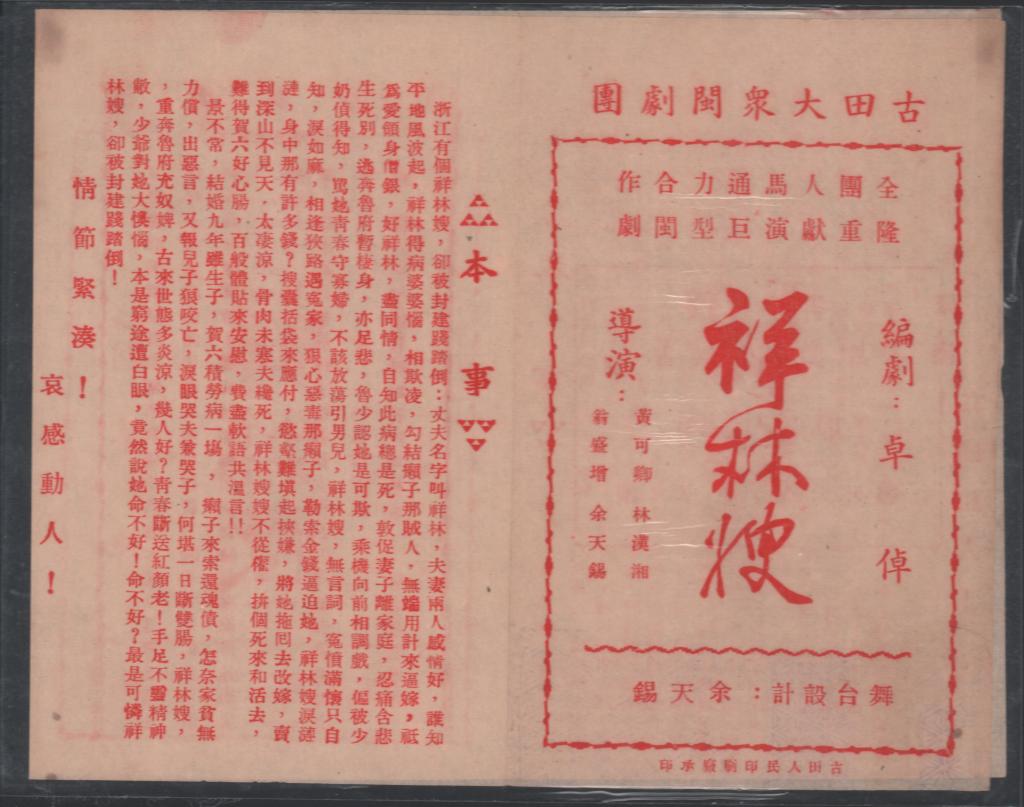 古田大衆閩劇團
全團人馬通力合作
隆重獻演巨型閩劇
編劇：卓倬
祥林嫂
導演：
黃可卿 林漢湘
翁盛增 余天錫
舞台設計：余天錫
古田人民印刷廠承印
本事
浙江有個祥林嫂，卻被封建踐踏倒：丈夫名字叫祥林，夫妻兩人感情好，誰知
平地風波起，祥林得病婆婆惱，相欺凌，勾結癩子那賊人，無端用計來逼嫁，祗
爲愛頷身借銀，好祥林，盡同情，自知此病總是死，敦促妻子離家庭，忍痛含悲
生死別，逃奔魯府暫棲身，亦足悲，魯少認她是可欺，乘機向前相調戲，偏被少
奶偵得知，駡她靑春守寡婦，不該放蕩引男兒，祥林嫂，無言詞，寃憤滿懷只自
知，淚如麻，相逢狹路遇寃家，狠心惡毒那癩子，勒索金錢逼迫她，祥林嫂淚漣
漣，身中那有許多錢？搜囊括袋來應付，慾壑難填起挾嫌，將她拖囘去改嫁，賣
到深山不見天，太凄涼，骨肉未寒夫纔死，祥林嫂嫂不從儅，拚個死來和活去，
難得賀六好心腸，百般體貼來安慰，費盡軟語共溫言!!
景不常，結婚九年雖生子，賀六積勞病一塲，癩子來索還魂債，怎奈家貧無
力償，出惡言，又報兒子狼咬亡，淚眼哭夫兼哭子，何堪一日斷雙腸，祥林嫂，
，重奔魯府充奴婢，古來世態多炎涼，幾人好？靑春斷送紅顏老！手足不靈精神
散，少爺對她大懊惱，本是窮途遭白眼，竟然說她命不好！命不好？最是可憐祥
林嫂，卻被封建踐踏倒！
情節緊湊！
哀感動人！